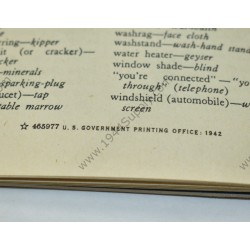 ring—kipper
it (or cracker)—
cracker)
—minerals
sparking-plug
ucet)—tap
table marrow
washrag—face cloth
washstand—wash-hand stand
water heater—geyser
window shade—blind
"you're connected"—"
through," (telephone)
windshield (automobile)—w
screen
☆ 465977 U. S. GOVERNMENT PRINTING OFFICE: 1942